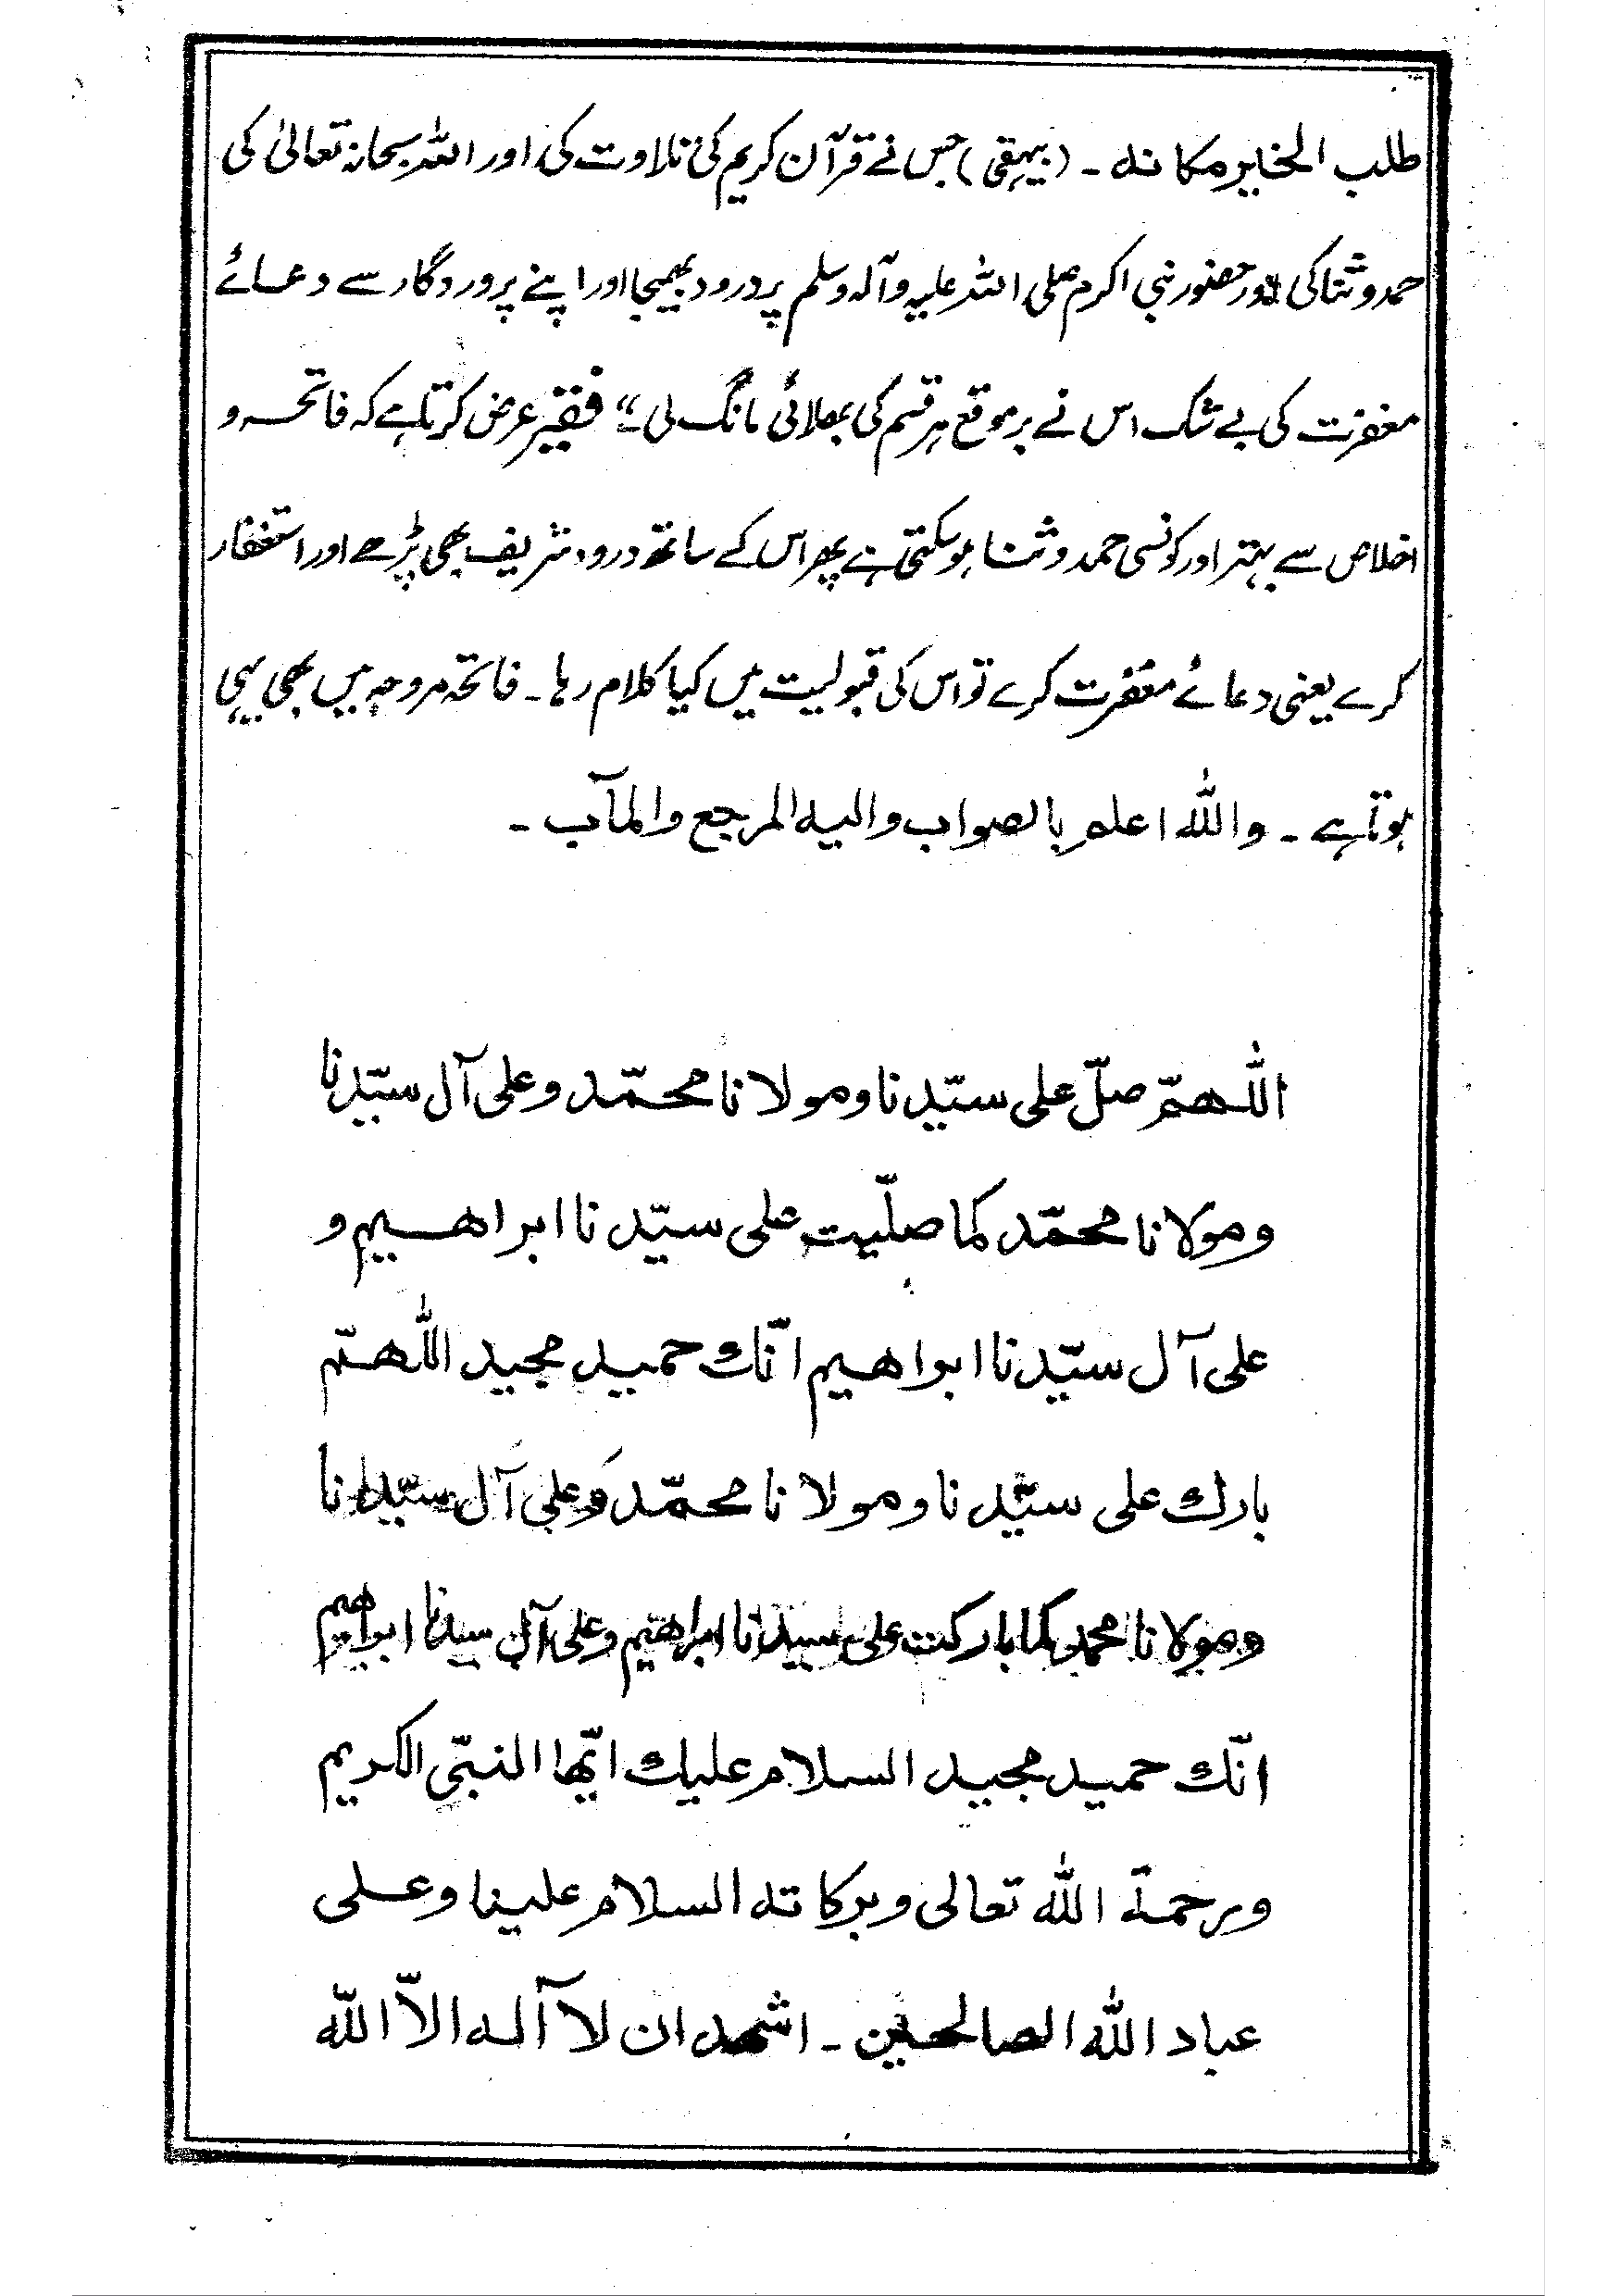 طلب الخیر مکانہ ۔ (بیہقی) جس نے قرآن کریم کی تلاوت کی اور اللہ سبحانہ تعالیٰ کی
حمد و ثنا کی اور حضور نبی اکرم صلی اللہ علیہ وآلہ وسلم پر درود بھیجا اور اپنے پروردگار سے دعائے
مغفرت کی بے شک اس نے بر موقع ہر قسم کی بھلائی مانگ لی“ فقیر عرض کرتا ہے کہ فاتحہ و
اخلاص سے بہتر اور کونسی حمد و ثنا ہو سکتی ہے پھر اس کے ساتھ درود شریف بھی پڑھے اور استغفار
کرے یعنی دعائے مغفرت کرے تو اس کی قبولیت میں کیا کلام رہا ۔ فاتحہ مروجہ میں بھی یہی
ہوتا ہے ۔ واللہ اعلم بالصواب والیہ المرجع والمآب ۔
اللّٰھمّ صلّ علی سیّدنا ومولانا محمّد وعلی آل سیّدنا
ومولانا محمّد کما صلّیت علی سیّدنا ابراھیم و
علی آل سیّدنا ابراھیم انّك حمید مجید اللّٰھمّ
بارك علی سیّدنا ومولانا محمّد وَعلی آل سیّدنا
ومولانا محمد کما بارکت علی سیدنا ابراھیم وعلی آل سیدنا ابراھیم
انّك حمید مجید السلام علیك ایّھا النبّی الکریم
ورحمۃ اللّٰہ تعالی وبرکاتہ السلام علینا وعلی
عباد اللّٰہ الصالحین ۔ اشھد ان لا آلہ الاّ اللّٰہ